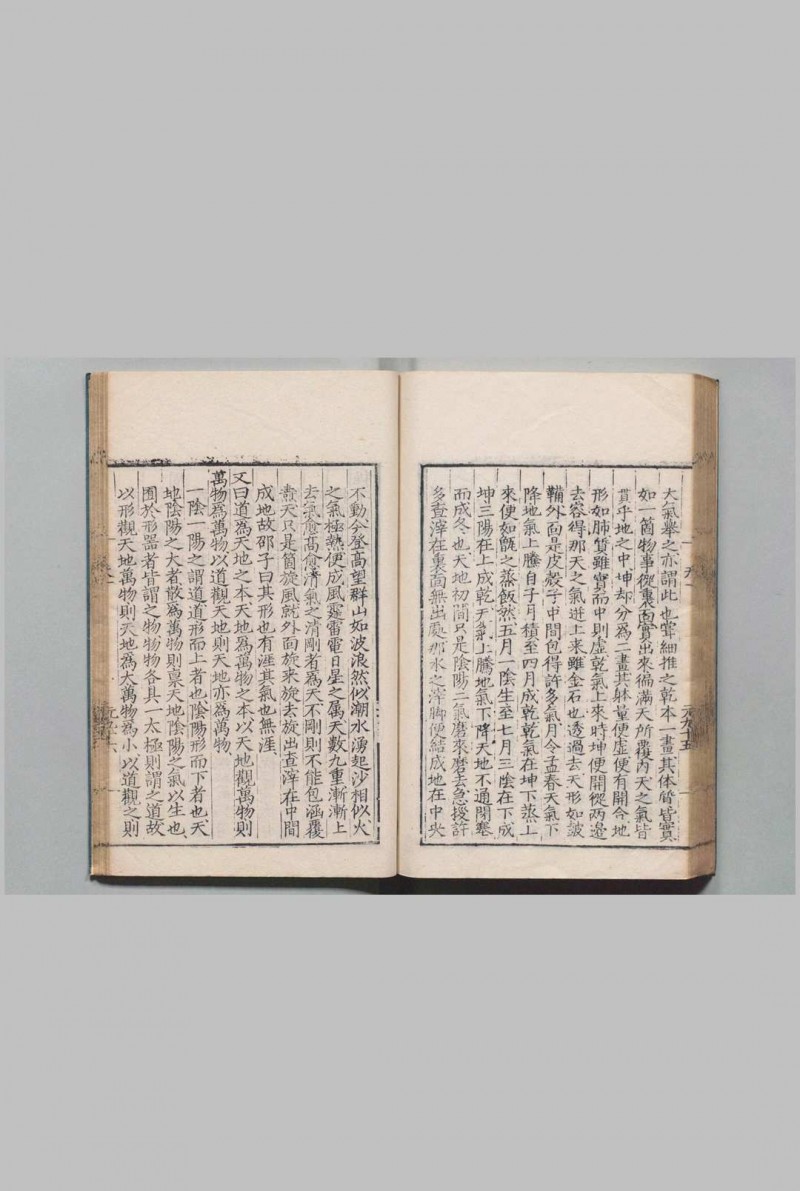 大氣舉之亦謂此也甞細推之乾本一畫其体質皆實
如一箇物事從裏面實出來徧滿天所覆內天之氣皆
貫乎地之中坤却分爲二畫其躰量便虛便有開合地
形如肺質雖實而中則虛乾氣上來時坤便開從兩邊
去容得那天之氣迸上来雖金石也透過去天形如皷
鞴外面是皮殼子中間包得許多氣月令孟春天氣下
降地氣上騰自子月積至四月成乾乾氣在坤下蒸上
來便如甑之蒸飯然五月一陰生至七月三陰在下成
坤三陽在上成乾天氣上騰地氣下降天地不通閉塞
而成冬也天地初間只是陰陽二氣磨來磨去急拶許
多查滓在裏面無出處那水之滓脚便結成地在中央
不動今登高望群山如波浪然似潮水湧起沙相似火
之氣極熱便成風霆雷電日星之属天數九重漸漸上
去氣愈高愈清氣之清剛者爲天不剛則不能包涵覆
燾天只是箇旋風就外面旋来旋去旋出查滓在中間
成地故邵子曰其形也有涯其氣也無涯
又曰道爲天地之本天地爲萬物之本以天地觀萬物則
萬物爲萬物以道觀天地則天地亦爲萬物
一陰一陽之謂道道形而上者也陰陽形而下者也天
地陰陽之大者散爲萬物則稟天地陰陽之氣以生也
囿於形器者皆謂之物物物各具一太極則謂之道故
以形觀天地萬物則天地爲大萬物爲小以道觀之則